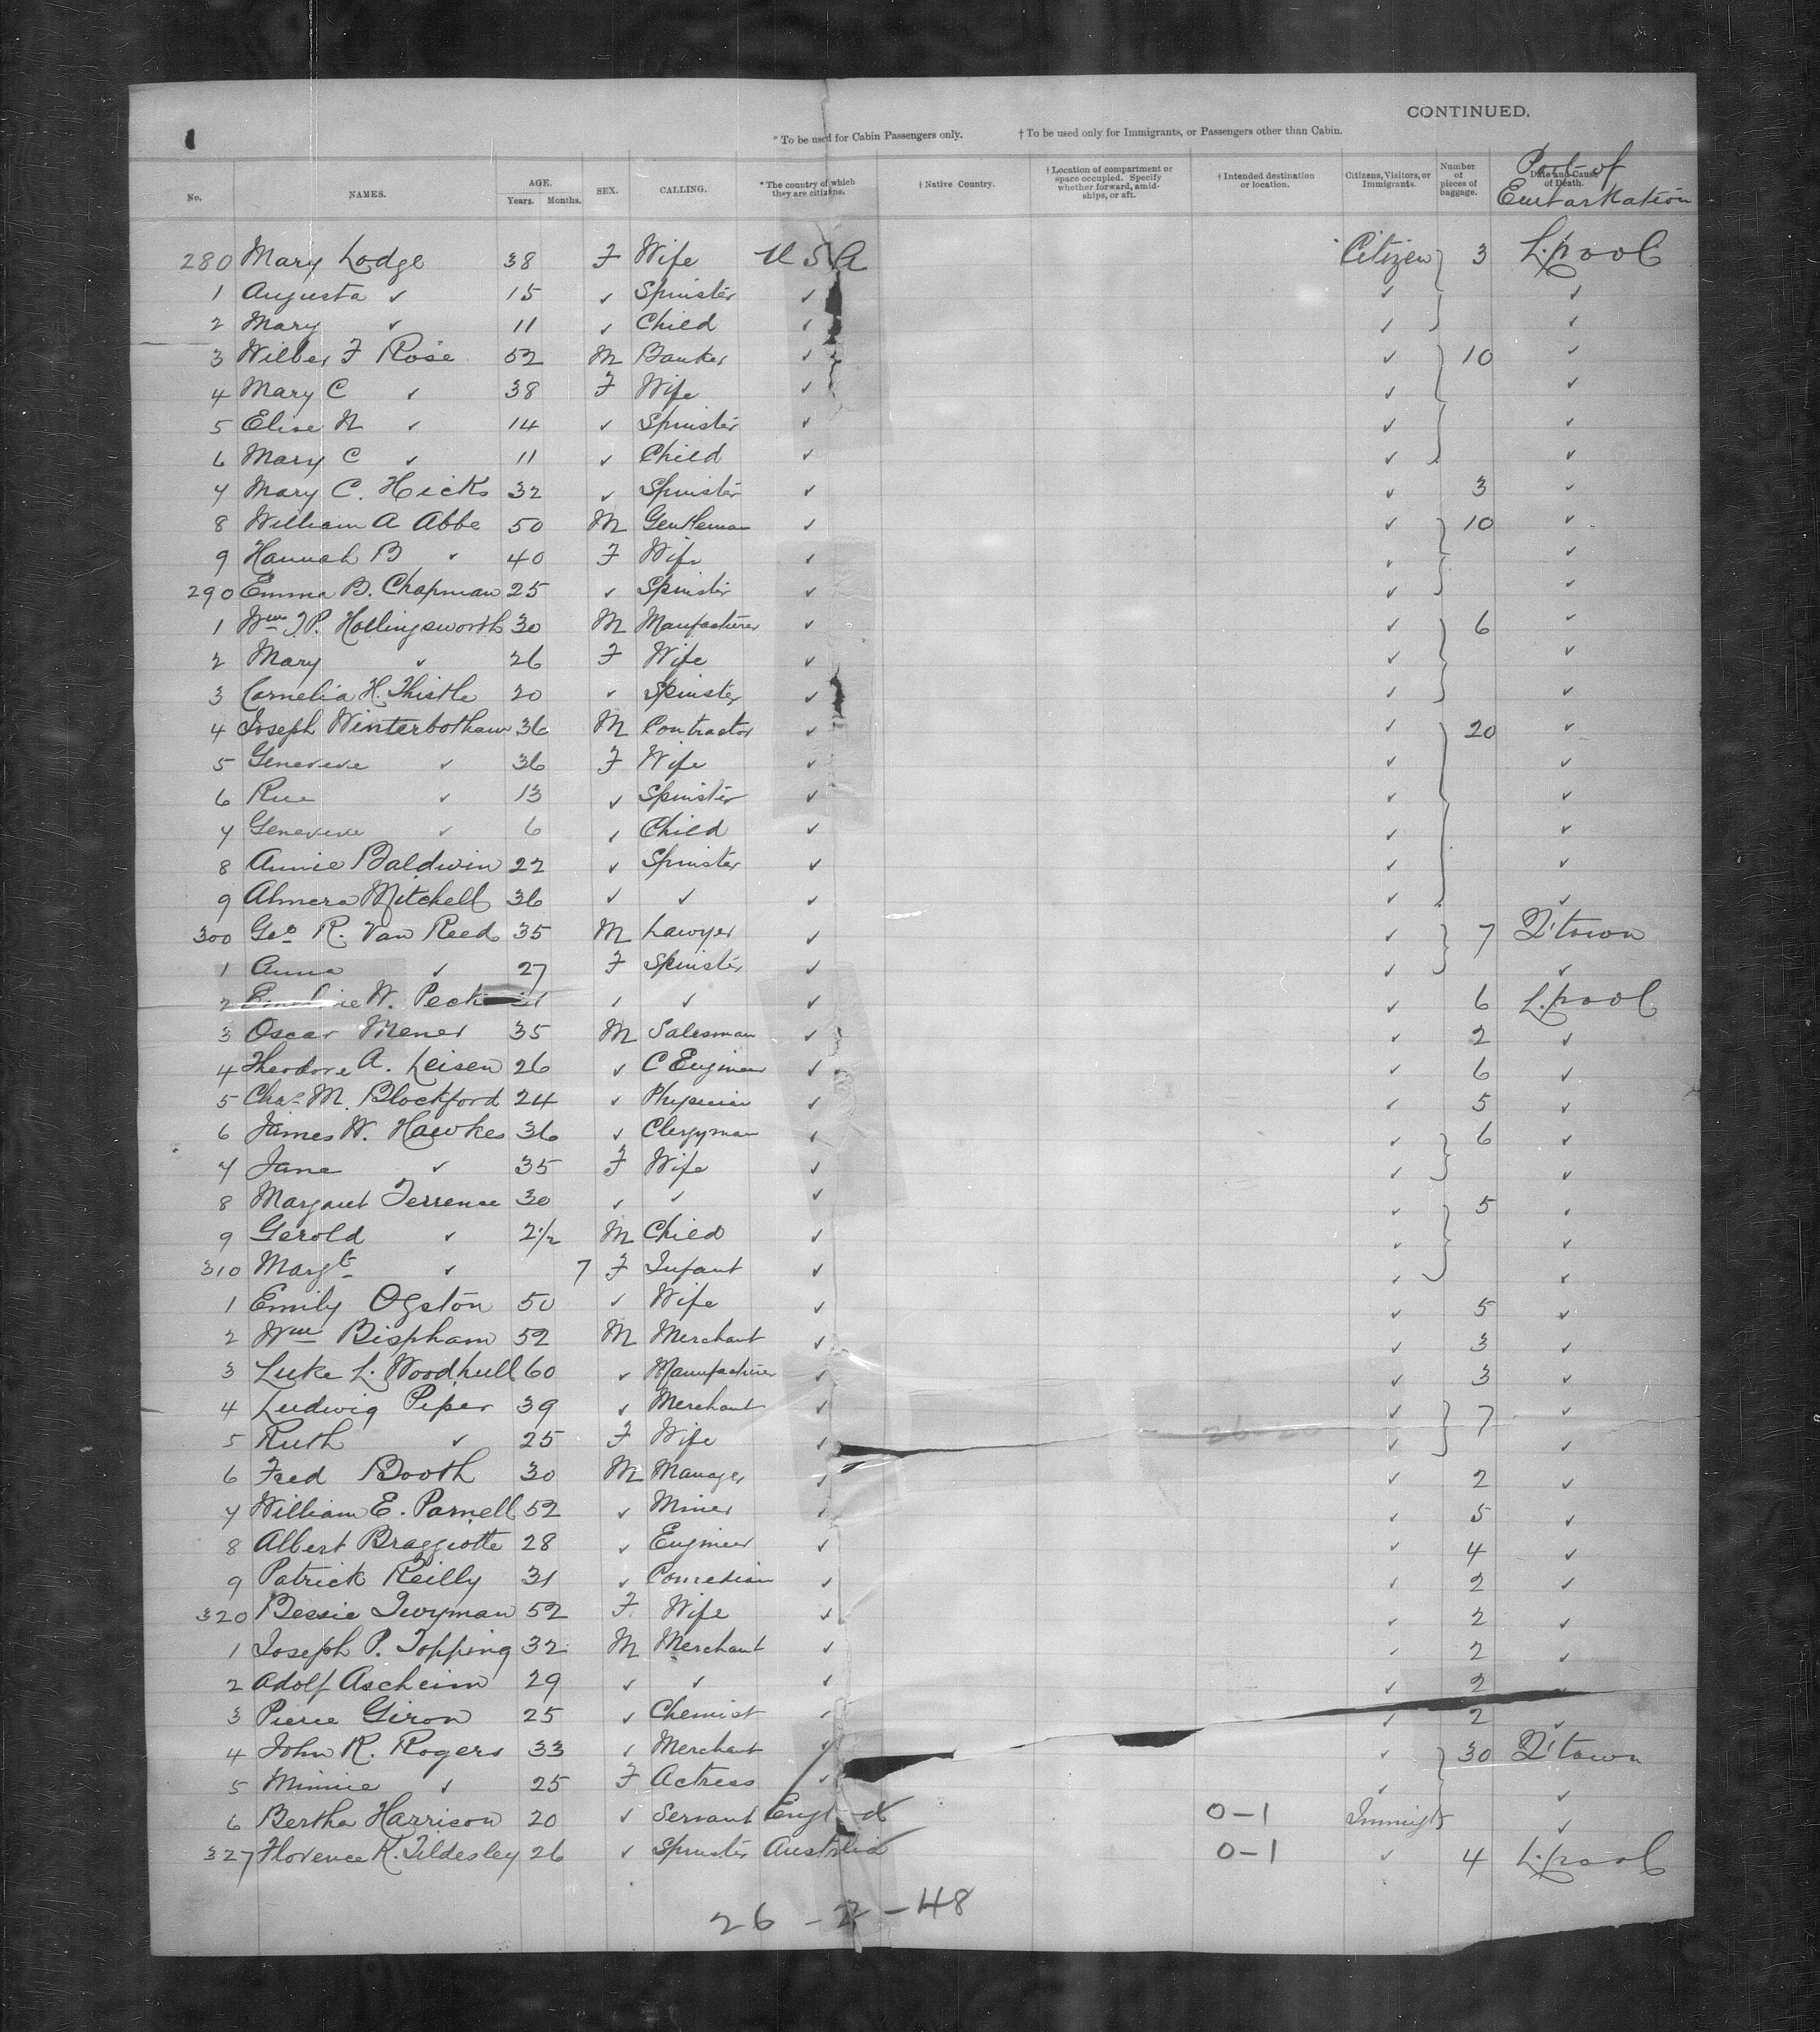 CONTINUED.
* To be used for Cabin Passengers only. † To be used only for Immigrants, or Passengers other than Cabin.
No. NAMES. AGE. Years. Months. SEX. CALLING. * The country of which they are citizens. † Native Country. † Location of compartment or space occupied. Specify whether forward, amidships, or aft. † Intended destination or location. Citizens, Visitors, or Immigrants. Number of pieces of baggage. Date and Cause of Death. Port of Embarkation
280 Mary Lodge 38 F Wife U S A Citizen 3 L.pool
1 Augusta ✓ 15 ✓ Spinster ✓ ✓ ✓
2 Mary ✓ 11 ✓ Child ✓ ✓ ✓
3 Wilber F Rose 52 M Banker ✓ ✓ 10 ✓
4 Mary C ✓ 38 F Wife ✓ ✓ ✓
5 Elise N ✓ 14 ✓ Spinster ✓ ✓ ✓
6 Mary C ✓ 11 ✓ Child ✓ ✓ ✓
7 Mary C. Hicks 32 ✓ Spinster ✓ ✓ 3 ✓
8 William A Abbe 50 M Gentleman ✓ ✓ 10 ✓
9 Hannah B ✓ 40 F Wife ✓ ✓ ✓
290 Emma B. Chapman 25 ✓ Spinster ✓ ✓ ✓
1 Wm I.P. Hollingsworth 30 M Manufacturer ✓ ✓ 6 ✓
2 Mary ✓ 26 F Wife ✓ ✓ ✓
3 Cornelia H. Thistle 20 ✓ Spinster ✓ ✓ ✓
4 Joseph Winterbotham 36 M Contractor ✓ ✓ 20 ✓
5 Genevieve ✓ 36 F Wife ✓ ✓ ✓
6 Rue ✓ 13 ✓ Spinster ✓ ✓ ✓
7 Genevieve ✓ 6 ✓ Child ✓ ✓ ✓
8 Annie Baldwin 22 ✓ Spinster ✓ ✓ ✓
9 Almera Mitchell 36 ✓ ✓ ✓ ✓ ✓
300 Geo R. Van Reed 35 M Lawyer ✓ ✓ 7 Q'town
1 Anna ✓ 27 F Spinster ✓ ✓ ✓
2 W. Peck ✓ ✓ ✓ ✓ 6 L.pool
3 Oscar Mener 35 M Salesman ✓ ✓ 2 ✓
4 Theodore A. Leisen 26 ✓ C Engineer ✓ ✓ 6 ✓
5 Chas M. Blockford 24 ✓ Physician ✓ ✓ 5 ✓
6 James W. Hawkes 36 ✓ Clergyman ✓ ✓ 6 ✓
7 Jane ✓ 35 F Wife ✓ ✓ ✓
8 Margaret Terrence 30 ✓ ✓ ✓ ✓ 5 ✓
9 Gerold ✓ 2½ M Child ✓ ✓ ✓
310 Margt ✓ 7 F Infant ✓ ✓ ✓
1 Emily Ogston 50 ✓ Wife ✓ ✓ 5 ✓
2 Wm Bispham 52 M Merchant ✓ ✓ 3 ✓
3 Luke L. Woodhull 60 ✓ Manufacturer ✓ ✓ 3 ✓
4 Ludwig Piper 39 ✓ Merchant ✓ ✓ 7 ✓
5 Ruth ✓ 25 F Wife ✓ ✓ ✓
6 Fred Booth 30 M Manager ✓ ✓ 2 ✓
7 William E. Parnell 52 ✓ Miner ✓ ✓ 5 ✓
8 Albert Braggiotte 28 ✓ Engineer ✓ ✓ 4 ✓
9 Patrick Reilly 31 ✓ Comedian ✓ ✓ 2 ✓
320 Bessie Twyman 52 F. Wife ✓ ✓ 2 ✓
1 Joseph P. Topping 32 M Merchant ✓ ✓ 2 ✓
2 Adolf Ascheim 29 ✓ ✓ ✓ ✓ 2 ✓
3 Pierre Giron 25 ✓ Chemist ✓ ✓ 2 ✓
4 John R. Rogers 33 ✓ Merchant ✓ ✓ 30 Q'town
5 Minnie ✓ 25 F Actress ✓ ✓ ✓
6 Bertha Harrison 20 ✓ Servant Engl d 0-1 Immigt ✓
327 Florence K. Tildesley 26 ✓ Spinster Australia 0-1 ✓ 4 L.pool
26 - 2 - 48